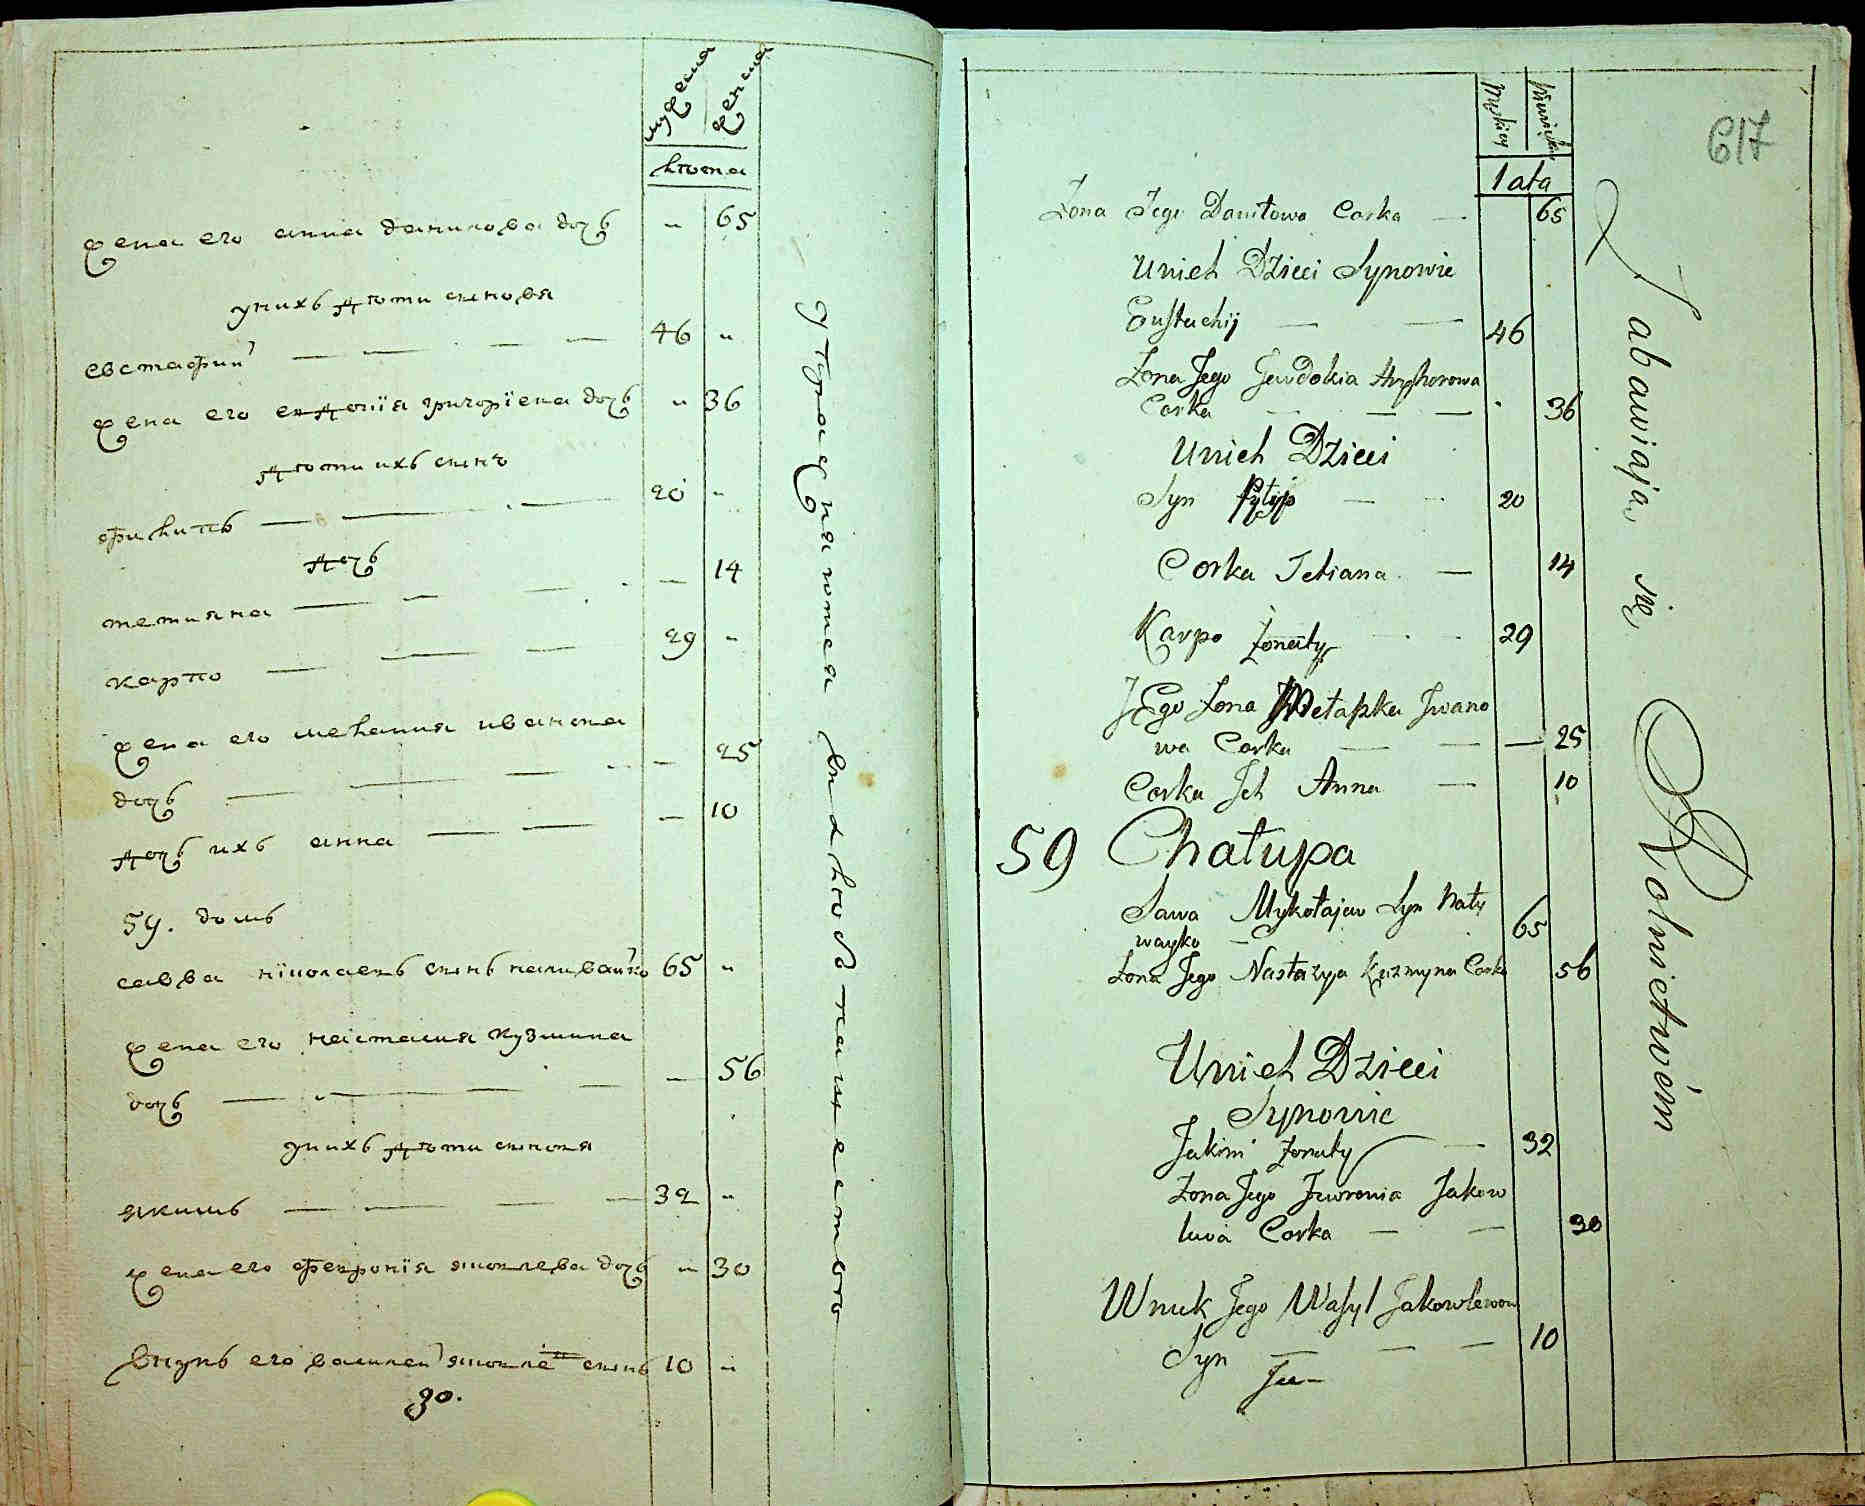 мужеска
женска
лѣта
жена его анна данилова дочь " 65
унихъ дѣти сыновя
евстафий 46 "
жена его евдокія григоріева дочь " 36
дѣти ихъ сынъ
филипъ 20 "
дочь
тетияна 14
карпо 29 "
жена его мелания иванова
дочь 25
дочь ихъ анна 10
59. домъ
савва ніколаевъ сынъ наливайко 65 "
жена его настасия кузмина
дочь 56
унихъ дѣти сыновя
якимъ 32 "
жена его февронія яковлева дочь " 30
внукъ его василей яковле сынъ 10 "
30.
упражняются въ хлѣбопашествѣ
617
Męskiey
Żenskiey
Lata
Zona Jego Daniłowa Corka 65
Unich Dzieci Synowie
Eustachij 46
Zona Jego Jewdokia Hryhorowa
Corka 36
Unich Dzieci
Syn Pyłyp 20
Corka Tetiana 14
Karpo Zonaty 29
JEgo Zona Mełaszka Jwano
wa Corka 25
Corka Jch Anna 10
59 Chałupa
Sawa Mykołajew Syn Nały
wayko 65
Zona Jego Nastazyja Kuzmyna Corka 56
Unich Dzieci
Synowie
Jakim Zonaty 32
Zona Jego Jewronia Jakow
lewa Corka 30
Wnuk Jego Wasyl Jakowlewow
Syn 10
Zabawiają się Rolnictwem